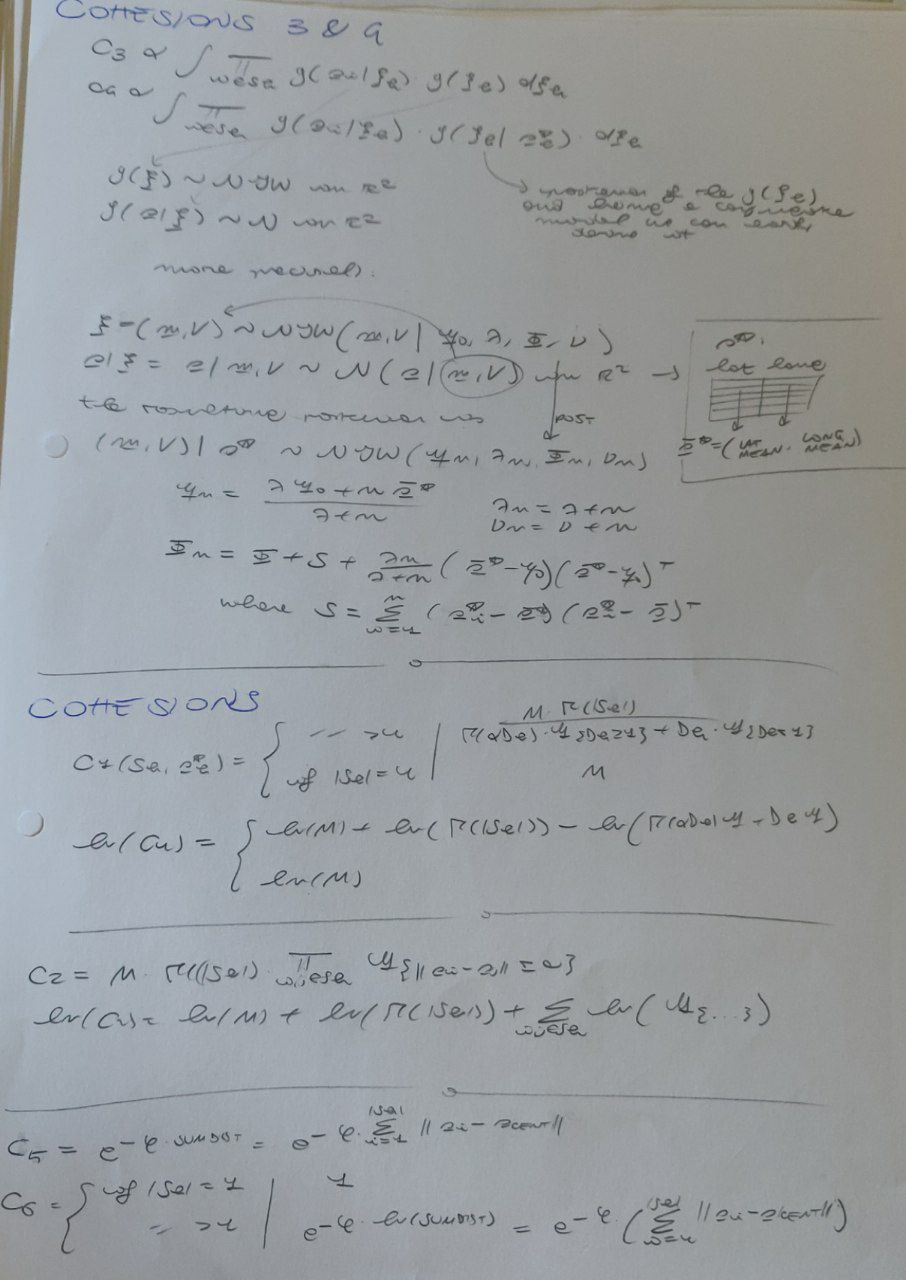 COHESIONS 3 & 4
C3 ∝ ∫ ∏_{i∈Sh} q(si|ξh) q(ξh) dξh
C4 ∝ ∫ ∏_{i∈Sh} q(si|ξh) · q(ξh|s*h) dξh
q(ξ) ~ NIW on R²
q(s|ξ) ~ N on R²
→ posterior of the q(ξh)
and being a conjugate
model we can easily
derive it
more precisely:
ξ = (m,V) ~ NIW(m,V | μ0, λ, Ψ, ν)
s|ξ = s|m,V ~ N(s|m,V) on R² →
s*:
lat long
s̄* = (LAT MEAN, LONG MEAN)
the resulting posterior is
POST
(m,V)|s* ~ NIW(μn, λn, Ψn, νn)
μn = (λμ0 + n s̄*)/(λ+n)
λn = λ+n
νn = ν+n
Ψn = Ψ + S + λn/(λ+n) (s̄*-μ0)(s̄*-μ0)^T
where S = Σ_{i=1}^{n} (s*i - s̄*)(s*i - s̄)^T
COHESIONS
C1(Sh, s*h) = { " >1 | M·Γ(|Sh|) / Γ(αDh)·1{Dh≥1} + Dh·1{Dh<1}
if |Sh|=1 | M
ln(C1) = { ln(M) + ln(Γ(|Sh|)) - ln(Γ(αDh)1 + Dh 1)
ln(M)
C2 = M · Γ(|Sh|) ∏_{i,j∈Sh} 1{||si-sj|| ≤ a}
ln(C2) = ln(M) + ln(Γ(|Sh|)) + Σ_{i,j∈Sh} ln(1{...})
C5 = e^{-φ·SUMDIST} = e^{-φ· Σ_{i=1}^{|Sh|} ||si - sCENT||}
C6 = { if |Sh| = 1 | 1
" >1 | e^{-φ·ln(SUMDIST)} = e^{-φ·(Σ_{i=1}^{|Sh|} ||si - sCENT||)}